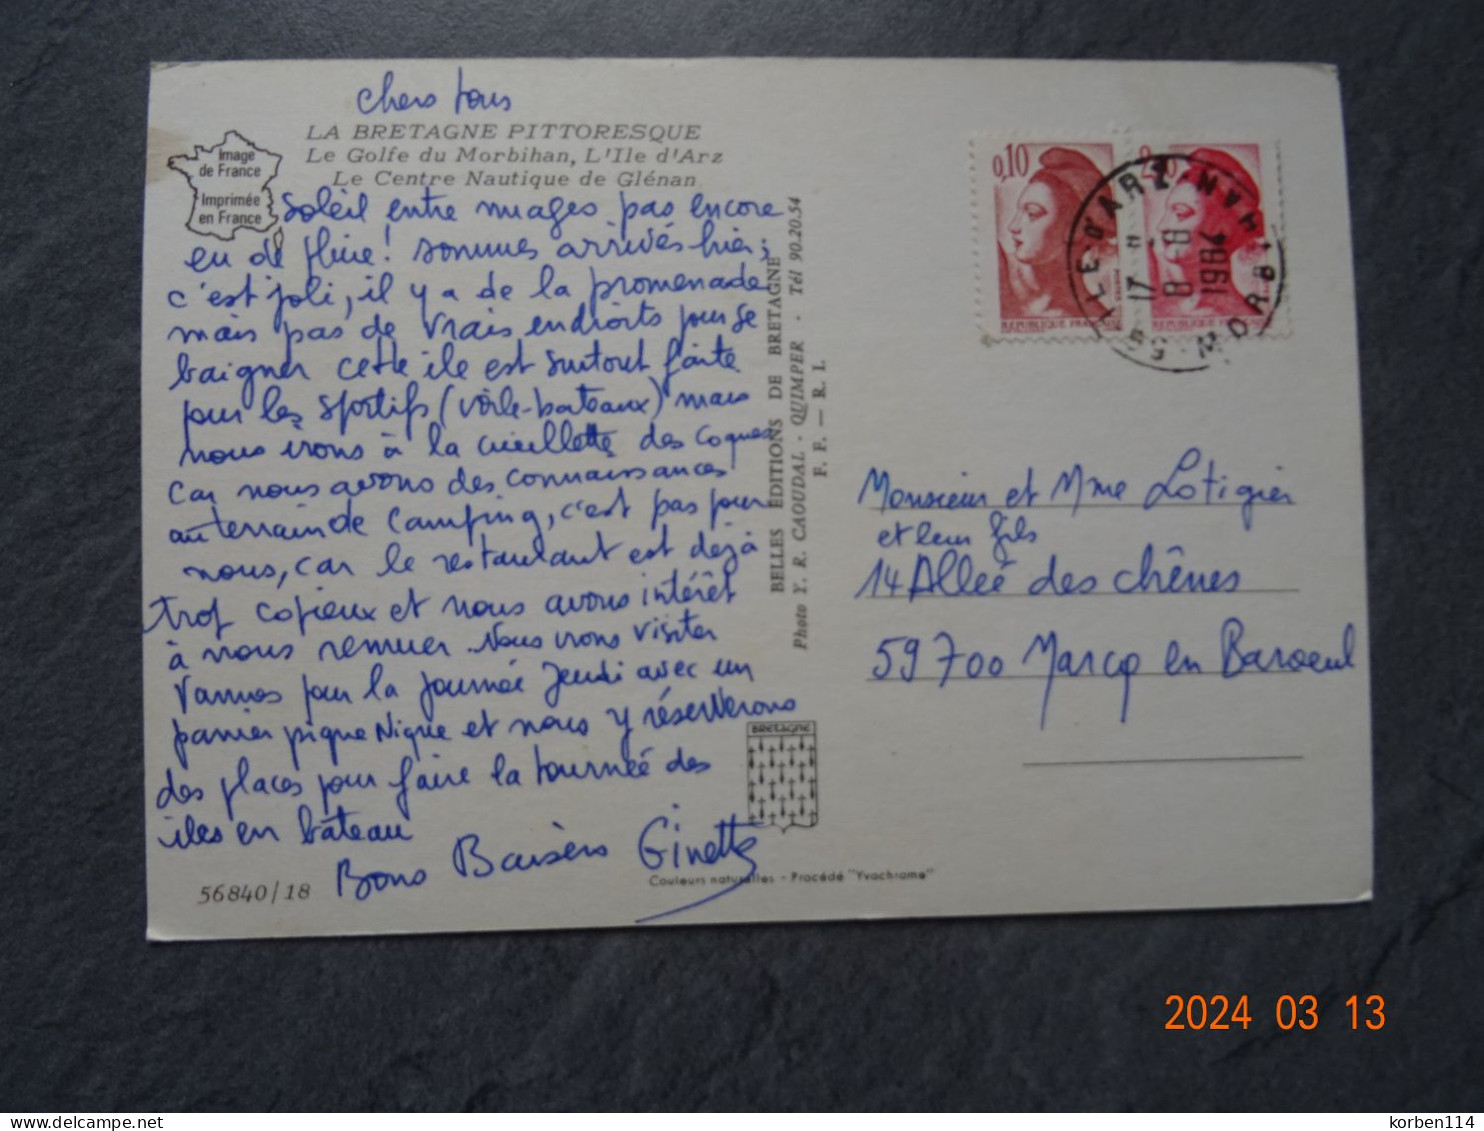 chers tous
LA BRETAGNE PITTORESQUE
Le Golfe du Morbihan, L'Ile d'Arz
Le Centre Nautique de Glénan
Image
de France
Imprimée
en France
Soleil entre nuages pas encore
eu de pluie! sommes arrivés hier;
c'est joli, il y a de la promenade
mais pas de vrais endroits pour se
baigner cette ile est surtout faite
pour les sportifs (voile-bateaux) mais
nous irons à la cueillette des coques
car nous avons des connaissances
au terrain de camping, c'est pas pour
nous, car le restaurant est dejà
trop copieux et nous avons intérêt
à nous remuer. Nous irons visiter
Vannes pour la journée Jeudi avec un
panier pique Nique et nous y réserverons
des places pour faire la tournée des
iles en bâteau
Bons Baisers Ginette
56840/18
BELLES ÉDITIONS DE BRETAGNE
Photo Y. R. CAOUDAL - QUIMPER - Tél 90.20.54
F. F. — R. I.
BRETAGNE
Couleurs naturelles - Procédé "Yvochrome"
0,10
REPUBLIQUE
ILE D'ARZ
17 H
8-8
1984
56 MORBIHAN
Monsieur et Mme Lotigier
et leur fils
14 Allée des chênes
59700 Marcq en Baroeul
2024 03 13
korben114